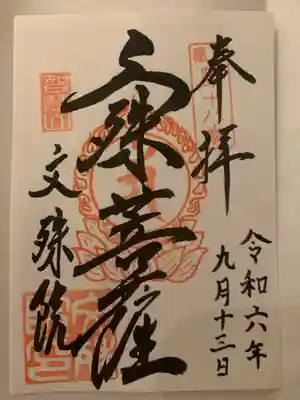 奉拝
令和六年
九月十三日
文殊菩薩
文殊院